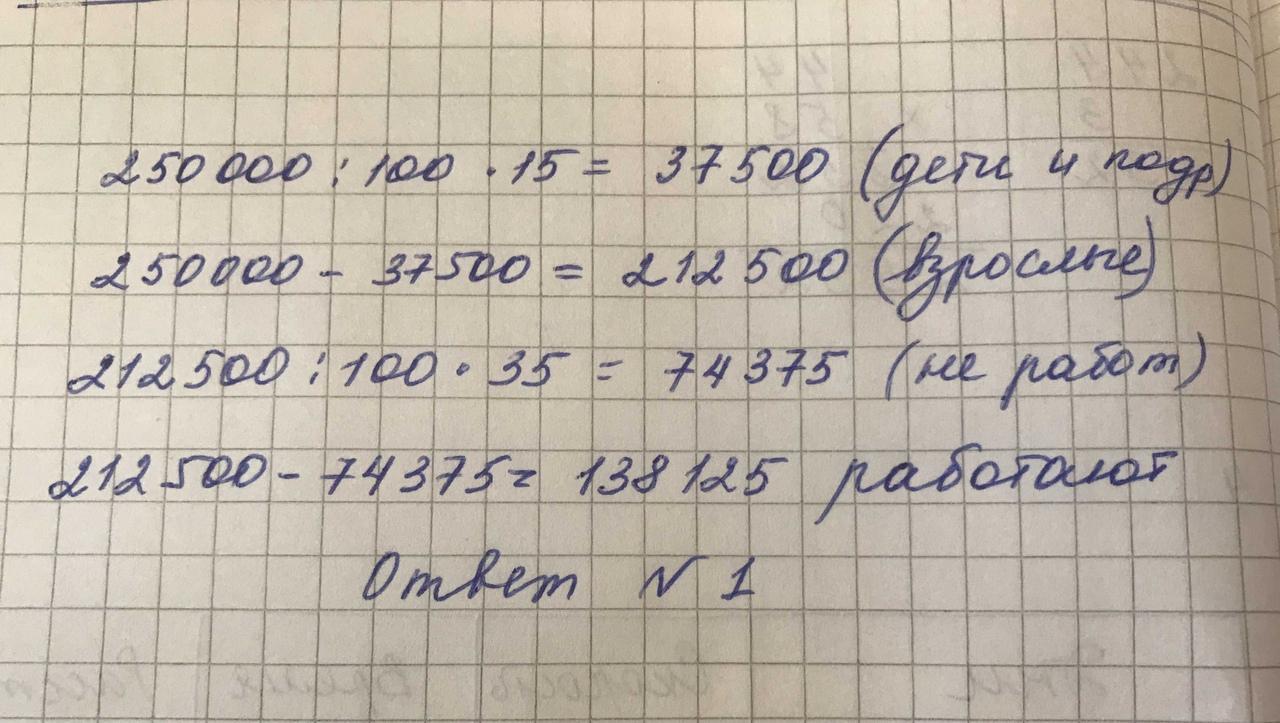 250000 : 100 · 15 = 37500 (дети и подр)
250000 - 37500 = 212500 (взрослые)
212500 : 100 · 35 = 74375 (не работ)
212500 - 74375 = 138125 работают
Ответ N 1